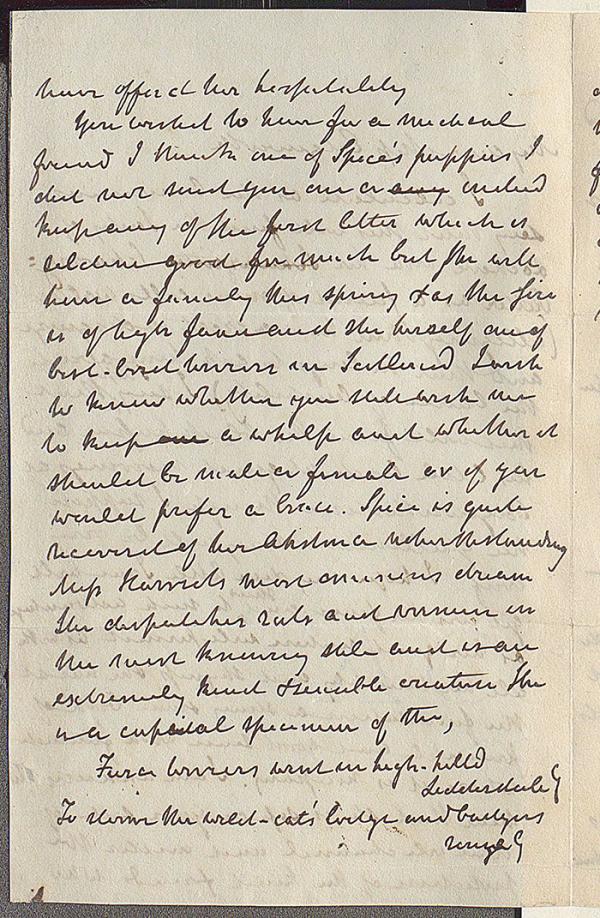 have offerd her hospitality
You wished to have for a medical
friend I think one of Spice's puppies I
did not send you one or any indeed
keep any of the first litter which is
seldom good for much but she will
have a family this spring & as the sire
is of high fame and she herself one of
best-bred terriers in Scotland I wish
to know whether you still wish me
to keep one a whelp and whether it
should be male or female or if you
would prefer a brace. Spice is quite
recoverd of her asthma notwithstanding
Miss Harriets most ominous dream
She despatches rats and vermin in
the most knowing stile and is an
extremely kind & sensible creature She
is a capital specimen of the,
Fierce terriers went in high-hilld
Liddesdale
To storm the wild-cat's lodge and badgers